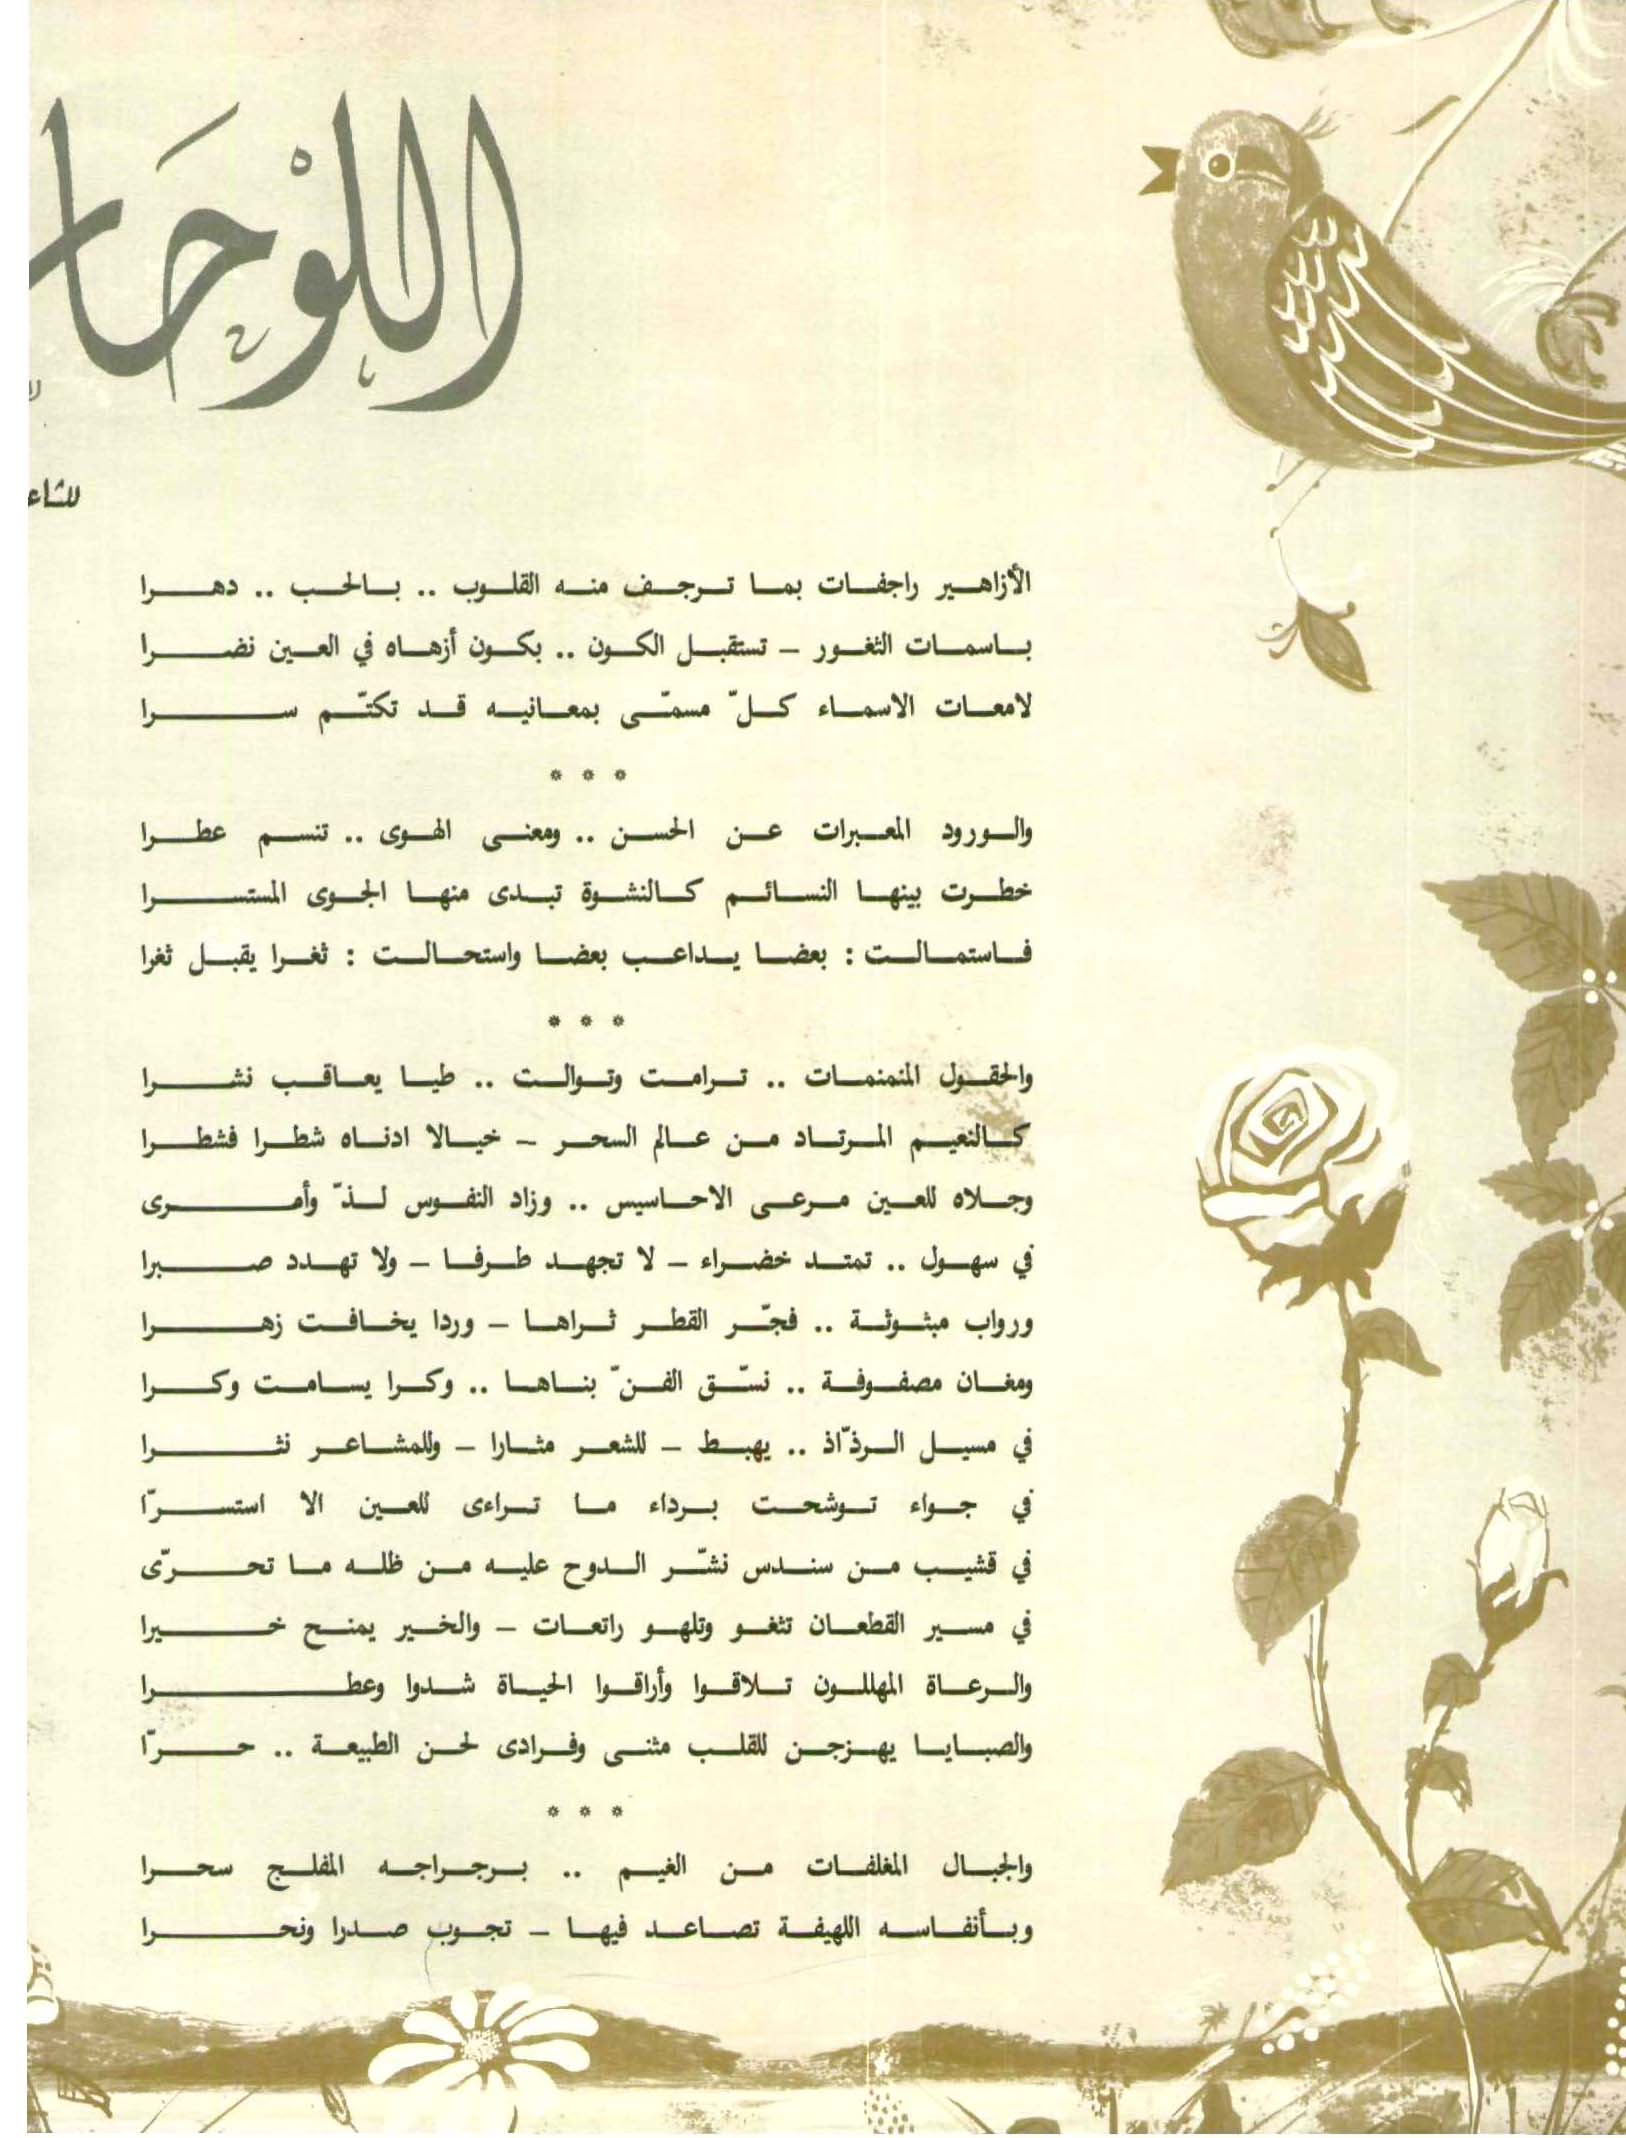 اللوحا
للشاعـ
الأزاهير راجفات بما ترجف منه القلوب .. بالحب .. دهرا
باسمات الثغور – تستقبل الكون .. بكون أزهاه في العين نضرا
لامعات الاسماء كلّ مسمّى بمعانيه قد تكتّم سرا
* * *
والورود المعبرات عن الحسن .. ومعنى الهوى .. تنسم عطرا
خطرت بينها النسائم كالنشوة تبدى منها الجوى المستسرا
فاستمالت : بعضا يداعب بعضا واستحالت : ثغرا يقبل ثغرا
* * *
والحقول المنمنمات .. ترامت وتوالت .. طيا يعاقب نشرا
كالنعيم المرتاد من عالم السحر – خيالا ادناه شطرا فشطرا
وجلاه للعين مرعى الاحاسيس .. وزاد النفوس لذّ وأمرى
في سهول .. تمتد خضراء – لا تجهد طرفا – ولا تهدد صبرا
ورواب مبثوثة .. فجّر القطر ثراها – وردا يخافت زهرا
ومغان مصفوفة .. نسّق الفنّ بناها .. وكرا يسامت وكرا
في مسيل الرذّاذ .. يهبط – للشعر مثارا – وللمشاعر نثرا
في جواء توشحت برداء ما تراءى للعين الا استسرّا
في قشيب من سندس نشّر الدوح عليه من ظله ما تحرّى
في مسير القطعان تثغو وتلهو راتعات – والخير يمنح خيرا
والرعاة المهللون تلاقوا وأراقوا الحياة شدوا وعطرا
والصبايا يهزجن للقلب مثنى وفرادى لحن الطبيعة .. حرّا
* * *
والجبال المغلفات من الغيم .. برجراجه المفلج سحرا
وبأنفاسه اللهيفة تصاعد فيها – تجوب صدرا ونحرا